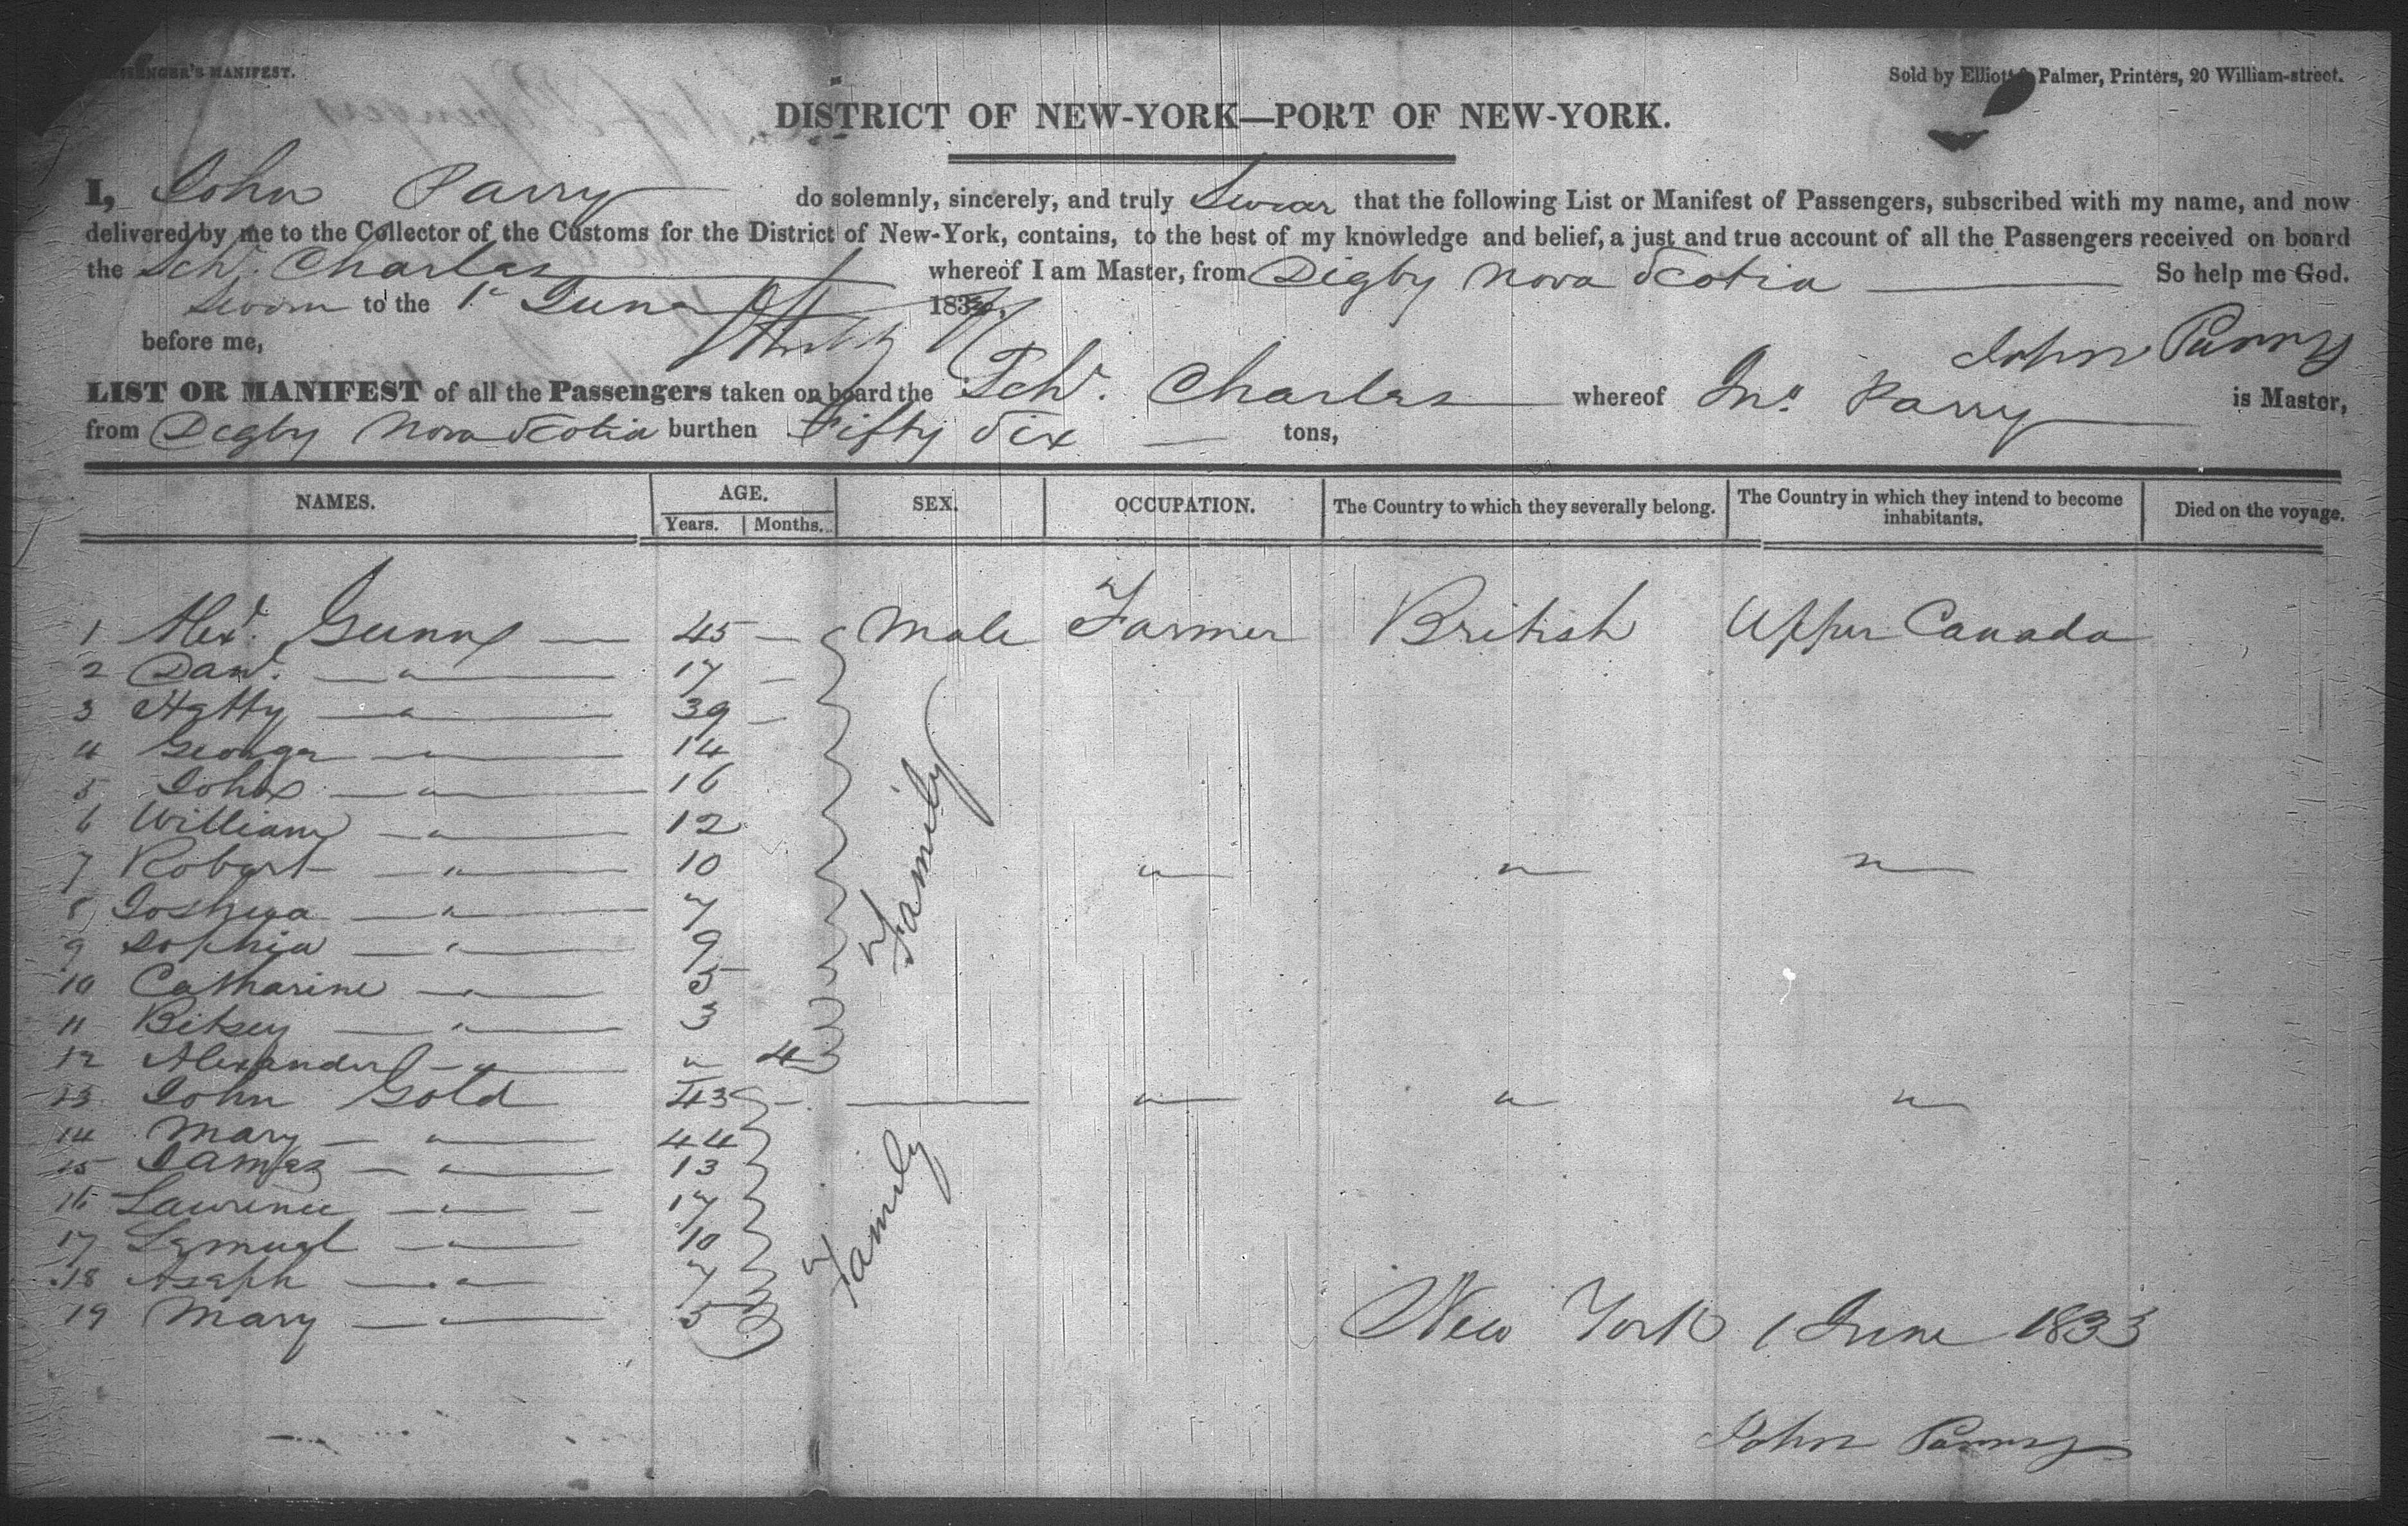 PASSENGER'S MANIFEST.
Sold by Elliott & Palmer, Printers, 20 William-street.
DISTRICT OF NEW-YORK—PORT OF NEW-YORK.
I, John Parry do solemnly, sincerely, and truly Swear that the following List or Manifest of Passengers, subscribed with my name, and now
delivered by me to the Collector of the Customs for the District of New-York, contains, to the best of my knowledge and belief, a just and true account of all the Passengers received on board
the Schr. Charles whereof I am Master, from Digby Nova Scotia So help me God.
Sworn to the 1st June 1833.
before me,
John Parry
LIST OR MANIFEST of all the Passengers taken on board the Schr. Charles whereof Jno. Parry is Master,
from Digby Nova Scotia burthen Fifty Six tons,
NAMES. AGE. SEX. OCCUPATION. The Country to which they severally belong. The Country in which they intend to become inhabitants. Died on the voyage.
Years. Months.
1 Alexr. Gunn — 45 — Male Farmer British Upper Canada
2 — " — 17 —
3 Hatty — " — 39 —
4 George — " — 14
5 John — " — 16
6 William — " — 12
7 Robert — " — 10 " " "
8 Joshua — " — 7
9 Sophia — " — 9
10 Catharine — " — 5
11 Betsey — " — 3
12 Alexander — " — " 4
Family
13 John Gold 43 — — " " "
14 Mary — " — 44
15 James — " — 13
16 Lawrence — " — 17
17 Samuel — " — 10
18 Asaph — " — 7
19 Mary — " — 5
Family
New York 1 June 1833
John Parry